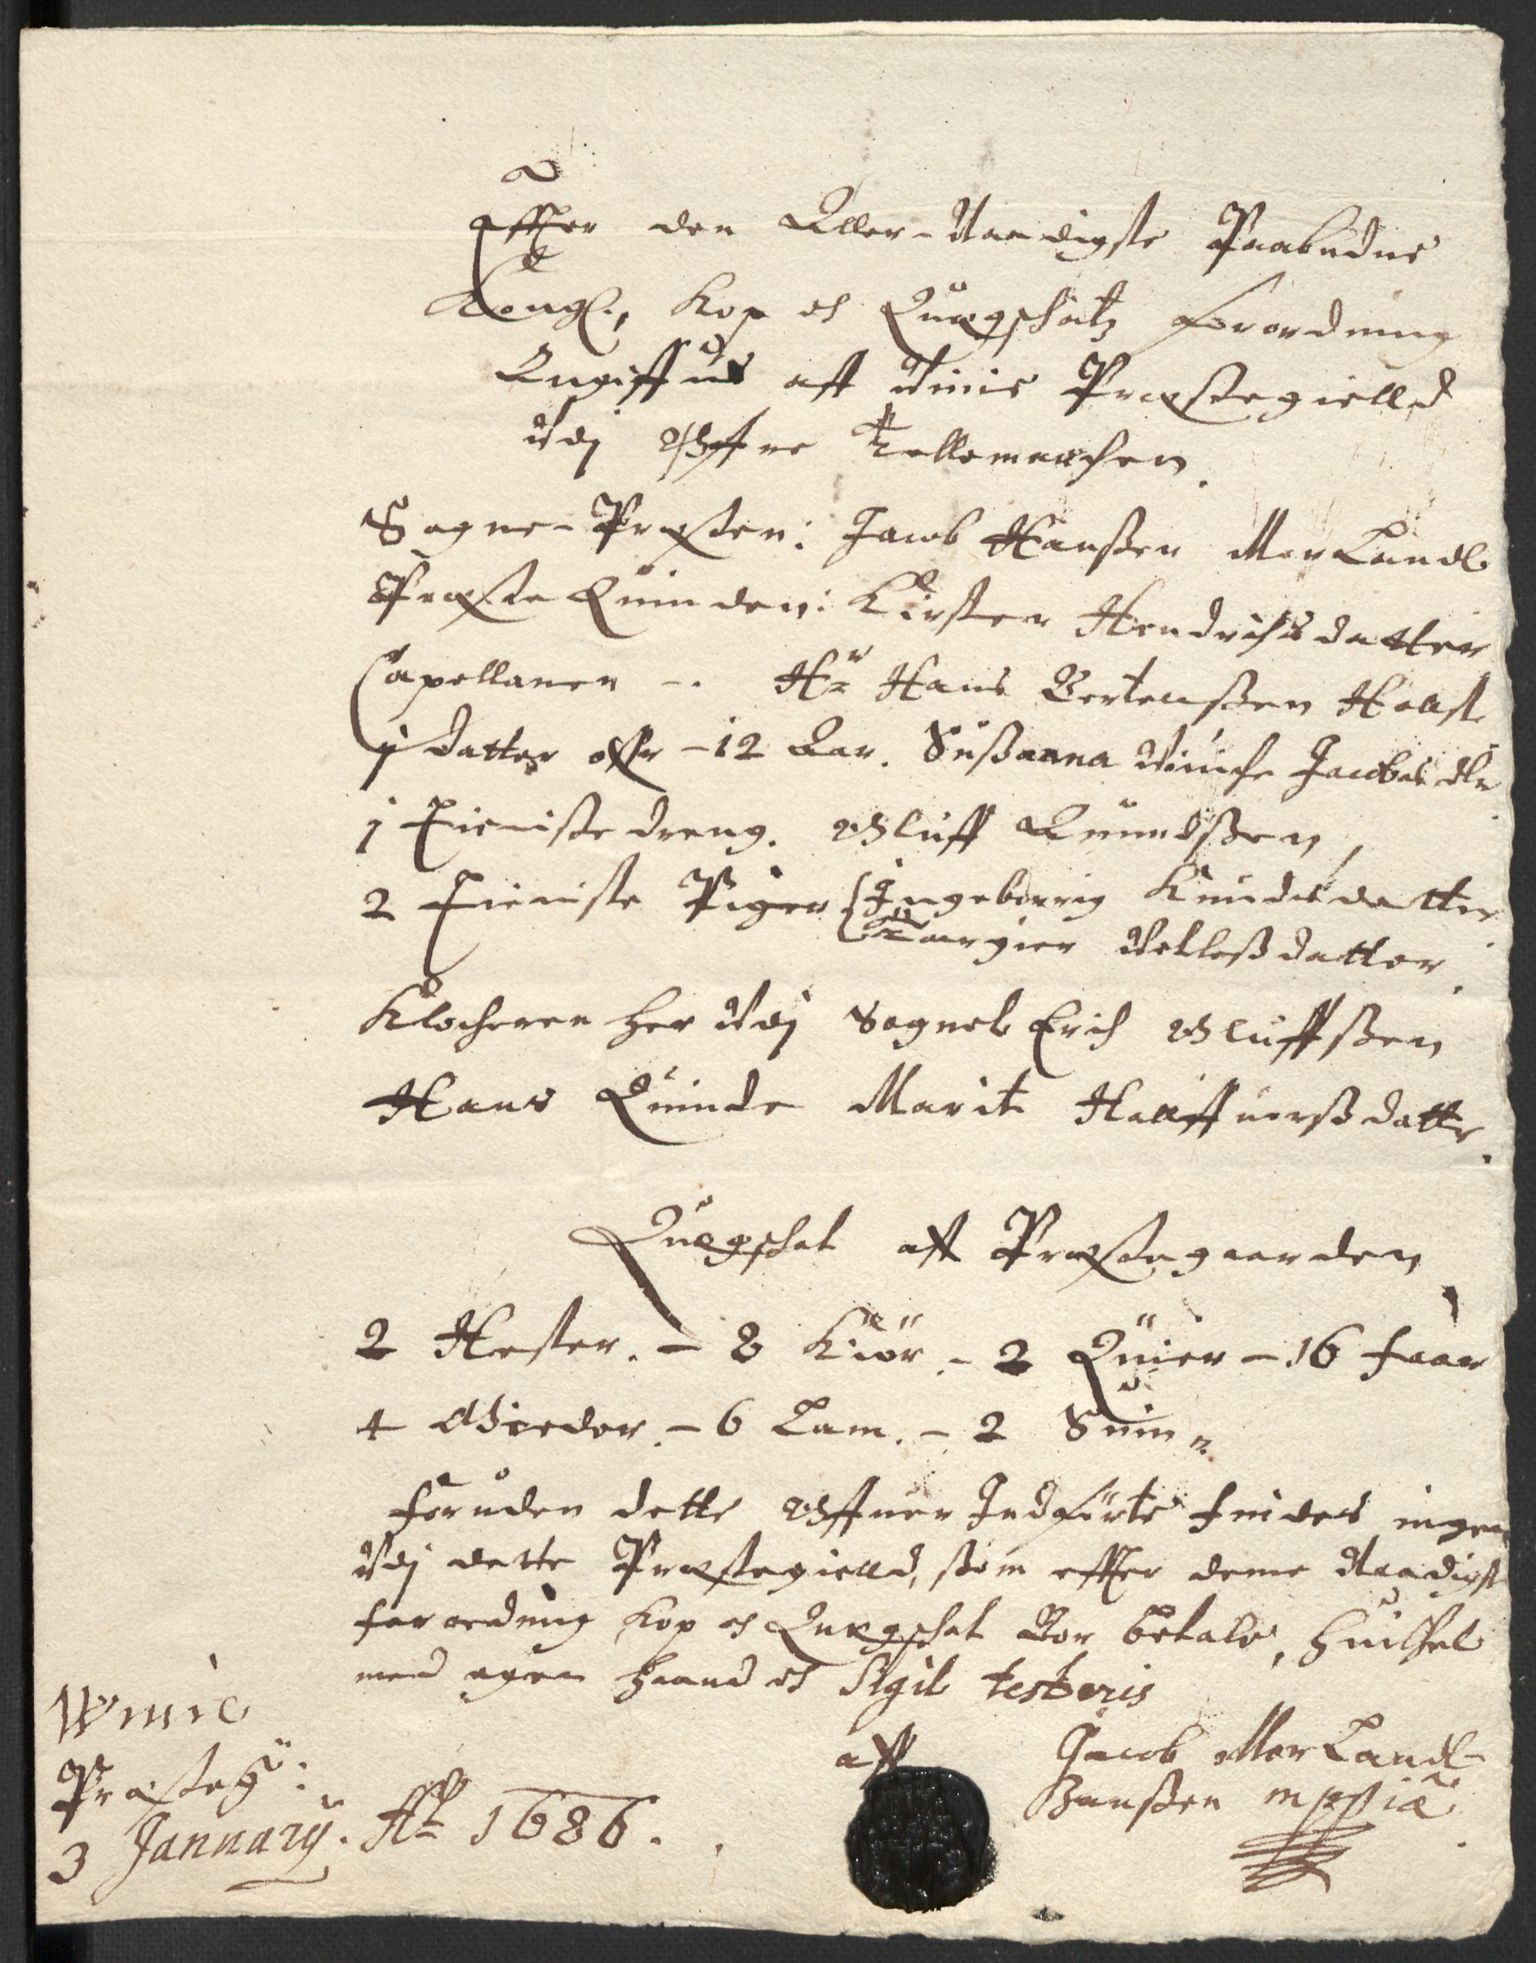 Effter den Aller-Naadigste Paabudne
Kongl., Kop och Quægschatz forordning
Angiffues aff Winie Præstegielld
Vdj Øffre Tellemarchen.
Sogne-Præsten: Jacob Hanßen MorLandt
Præste Quinden: Kirsten Hendrichsdatter
Capellanen -. Hr Hans Bertenßen Holst
j datter offr - 12 Aar. Sußanna Winiche Jacobsdtr
j Tieniste dreng. Oluff Amundßen,
2 Tieniste Piger Ingeborrig Knudsdatter
Targier Vetleßdatter.
Klocheren her Vdj Sognet Erich Oluffßen
Hans Quinde Marit Hallffuerßdatter.
Quegschat aff Præstegaarden
2 Hester. - 8 Kiör. - 2 Quier - 16 faar
4 Gieeder. - 6 Lam. - 2 Suin
foruden dette Offuer Indførte findes ingen
Vdj dette Præstegielld, som effter denne Naadigst
forordning Kop och Quegschat Bør betale, huilchet
med egen Haand och Sigil testeris
aff Jacob MorLandt
Hanßen mppia
Winie
Præsteg:
3 January. Ao 1686.